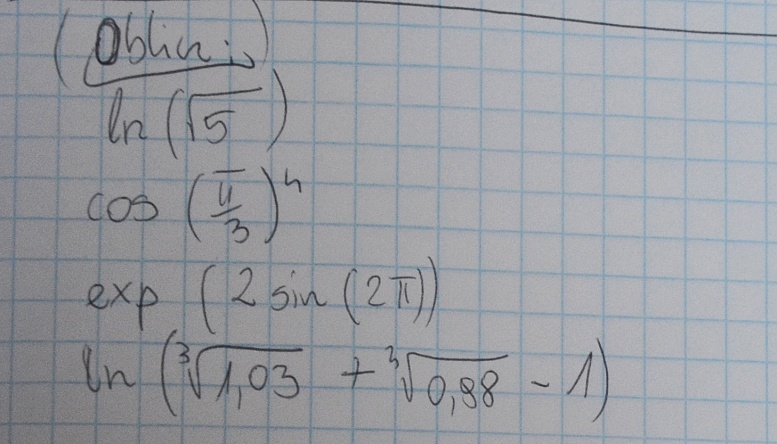 (Oblicz:)
ln (√5)
cos (π/3)⁴
exp (2 sin (2π))
ln (∛1,03 + ∛0,98 - 1)